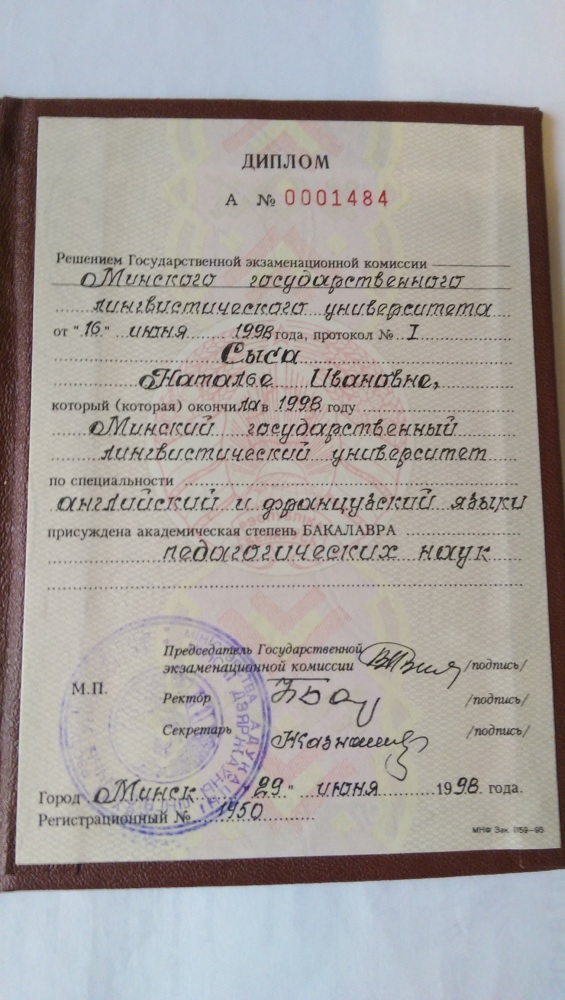 ДИПЛОМ
А № 0001484
Решением Государственной экзаменационной комиссии
Минского государственного
лингвистического университета
от "16" июня 1998 года, протокол № I
Сыса
Наталье Ивановне,
который (которая) окончила в 1998 году
Минский государственный
лингвистический университет
по специальности
английский и французский языки
присуждена академическая степень БАКАЛАВРА
педагогических наук
Председатель Государственной
экзаменационной комиссии /подпись/
М.П.
Ректор /подпись/
Секретарь /подпись/
Город Минск "29" июня 1998 года.
Регистрационный № 1950
МНФ Зак. 1159—95